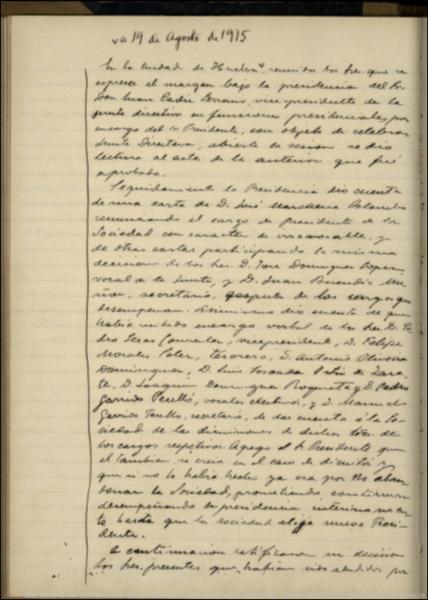 19 de Agosto de 1915
En la Ciudad de Huelva, reunidos los Sres. que se
expresa al margen bajo la presidencia del Sr.
Don Juan Cádiz Serrano, vicepresidente de la
junta directiva en funciones presidenciales por
encargo del Sr. Presidente, con objeto de celebrar
Junta Directiva, abierta la sesion se dió
lectura al acta de la anterior que fué
aprobada.
Seguidamente la Presidencia dió cuenta
de una carta de D. José Marchena Colombo
renunciando el cargo de Presidente de la
Sociedad con caracter de irrevocable, y
de otras cartas participando la misma
decision de los Sres. D. José Dominguez
vocal de la Junta, y D. Juan Buendía
secretario, de los cargos que
desempeñan. Asimismo dió cuenta de que
había recibido encargo verbal de los Sres. D. Pe
dro Gonzalez, vicepresidente, D. Felipe
Morales tesorero, D. Antonio Oliveira
Dominguez, D. Luis de Zara
te, D. Joaquin Dominguez Roqueta y D. Pedro
Garrido Perelló, vocales electivos, y D. Manuel
Garrido Perelló, secretario, de dar cuenta á la So
ciedad de las dimisiones de dichos Sres. de
los cargos respetivos. Agregó el Sr. Presidente que
el tambien se creia en el caso de dimitir y
que si no lo había hecho ya era por no aban
donar la Sociedad, prometiendo continuar
desempeñando la presidencia interinamen
te hasta que la sociedad elija nuevo Presi
dente.
A continuacion ratificaron su decision
los Sres. presentes que habian sido aludidos por